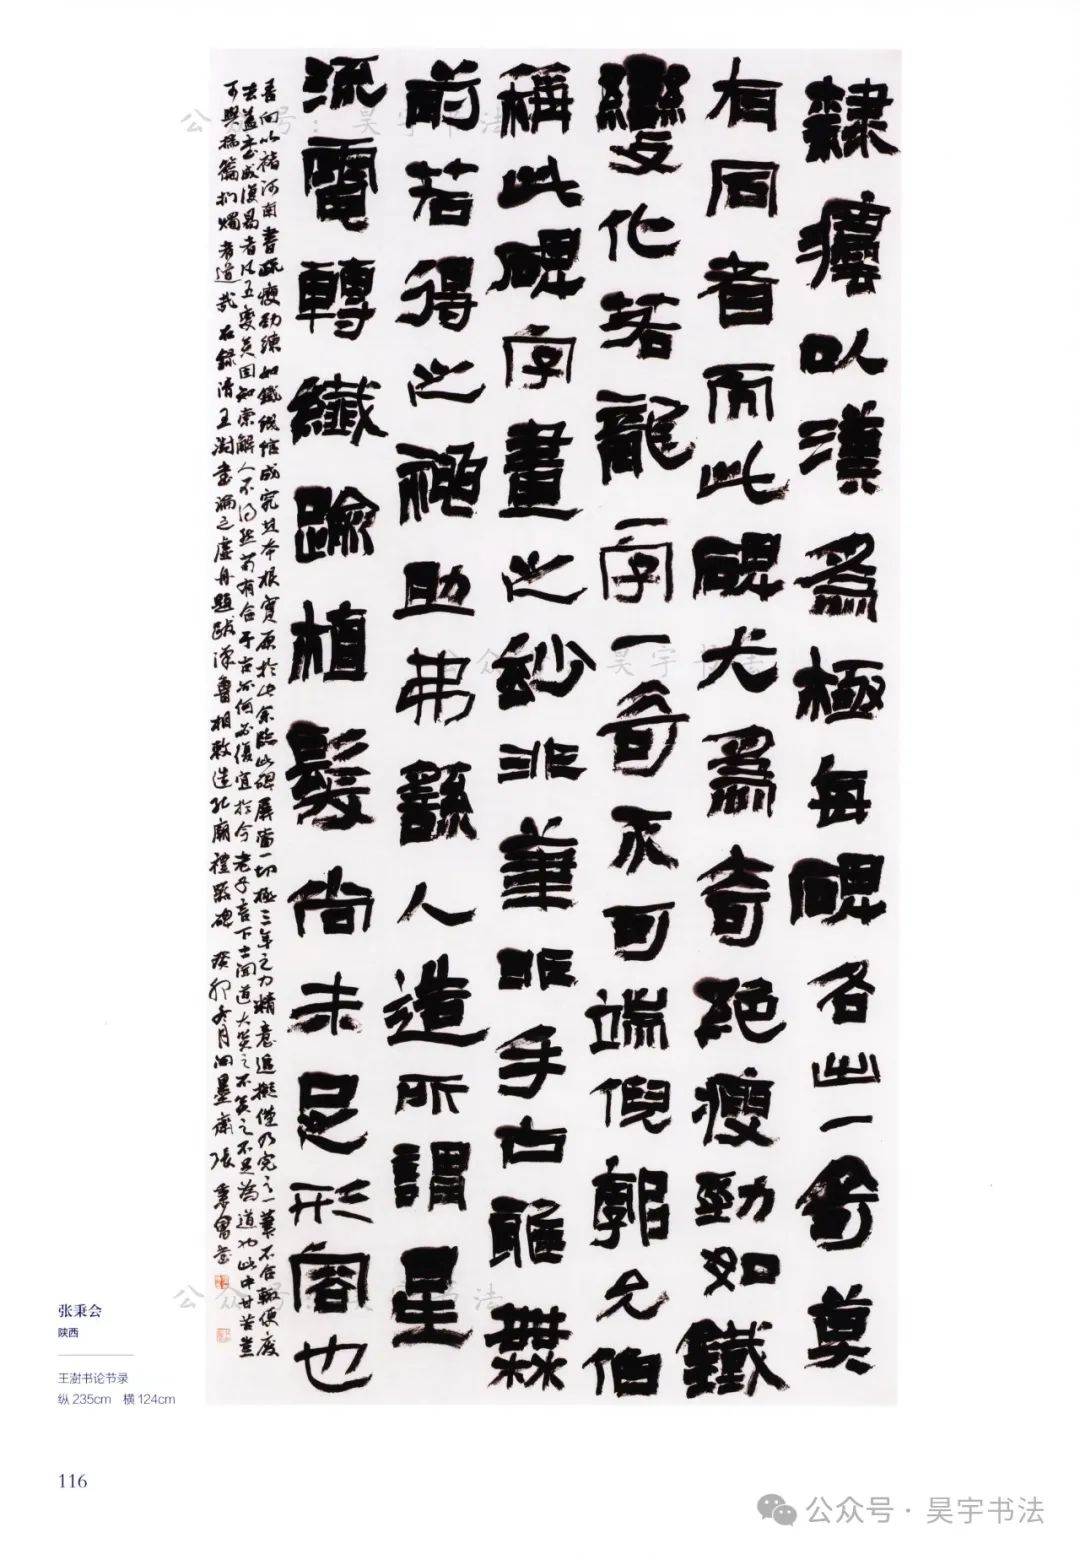 隸灋以漢為極每碑各出一奇莫
有同者而此碑尤為奇絕瘦勁如鐵
變化若龍一字一奇不可端倪郭允伯
稱此碑字畫之妙非筆非手古雅無
前若得之神助弗繇人造所謂星
流電轉纖踰植髮尚未足形容也
吾向以褚河南書疏瘦勁練如鐵线綰成究其本根實原於此余臨此碑屏當一切極三年之力精意追擬僅乃完之一筆不合輒便廢
去蓋書成復易者凡五變矣固知索解人不得然苟有合于古亦何必復宜於今老子言下士聞道大笑之不笑之不足為道也此中甘苦豈
可與揣籥捫燭者道哉 右錄清王澍書論之虛舟題跋漢魯相敕造孔廟禮器碑 癸卯冬月 墨齋張秉會書
张秉会
陕西
王澍书论节录
纵 235cm 横 124cm
116
公众号：昊宇书法
公众号：昊宇书法
公众号：昊宇书法
公众号·昊宇书法